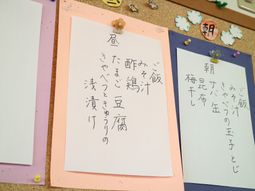 朝
朝
ご飯
みそ汁
きゃべつの玉子とじ
サバ缶
昆布
梅干し
昼
ご飯
みそ汁
酢鶏
たまご豆腐
きゃべつときゅうりの
浅漬け